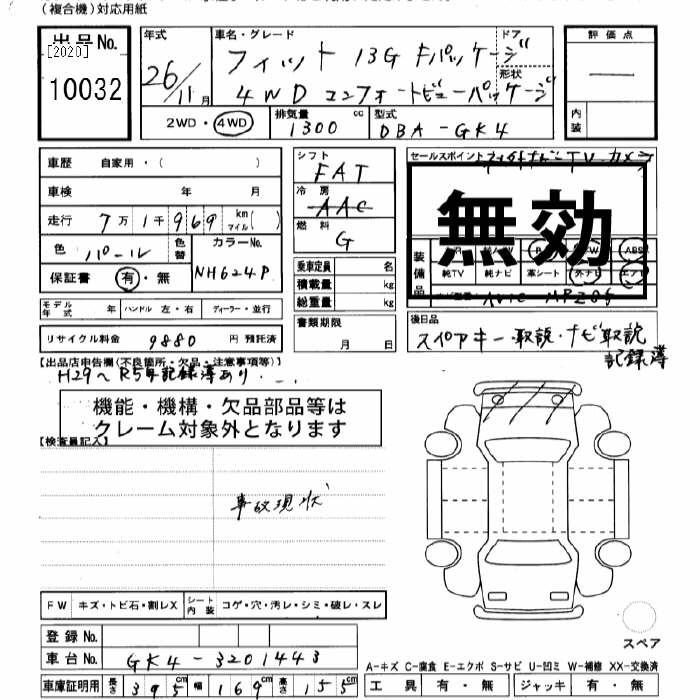 (複合機)対応用紙
出品No.
[2020]
10032
年式
26/11月
車名・グレード
フィット 13G Fパッケージ
4WD コンフォートビューパッケージ
ドア
形状
2WD・4WD
排気量
1300 cc
型式
DBA-GK4
評価点
内装
車歴 自家用・( )
車検 年 月
走行 7万1千969 km マイル( )
色 パール
色替
カラーNo.
NH624P
保証書 有・無
モデル年式 年 ハンドル 左・右 ディーラー・並行
リサイクル料金 9880 円 預託済
シフト
FAT
冷房
AAC
燃料
G
乗車定員 名
積載量 kg
総重量 kg
書類期限
月 日
セールスポイント TV・カメラ
無効
装備品
ABS
純TV 純ナビ 革シート 外ナビ エアB
後日品
スペアキー・取説・ナビ取説
記録簿
【出品店申告欄(不良箇所・欠品・注意事項等)】
H29~R5年記録簿あり
機能・機構・欠品部品等は
クレーム対象外となります
【検査員記入】
事故現状
FW キズ・トビ石・割レX
シート内装 コゲ・穴・汚レ・シミ・破レ・スレ
登録No.
車台No. GK4-3201443
車庫証明用 長さ 395cm 幅 169cm 高さ 155cm
スペア
A-キズ C-腐食 E-エクボ S-サビ U-凹ミ W-補修 XX-交換済
工具 有・無 ジャッキ 有・無